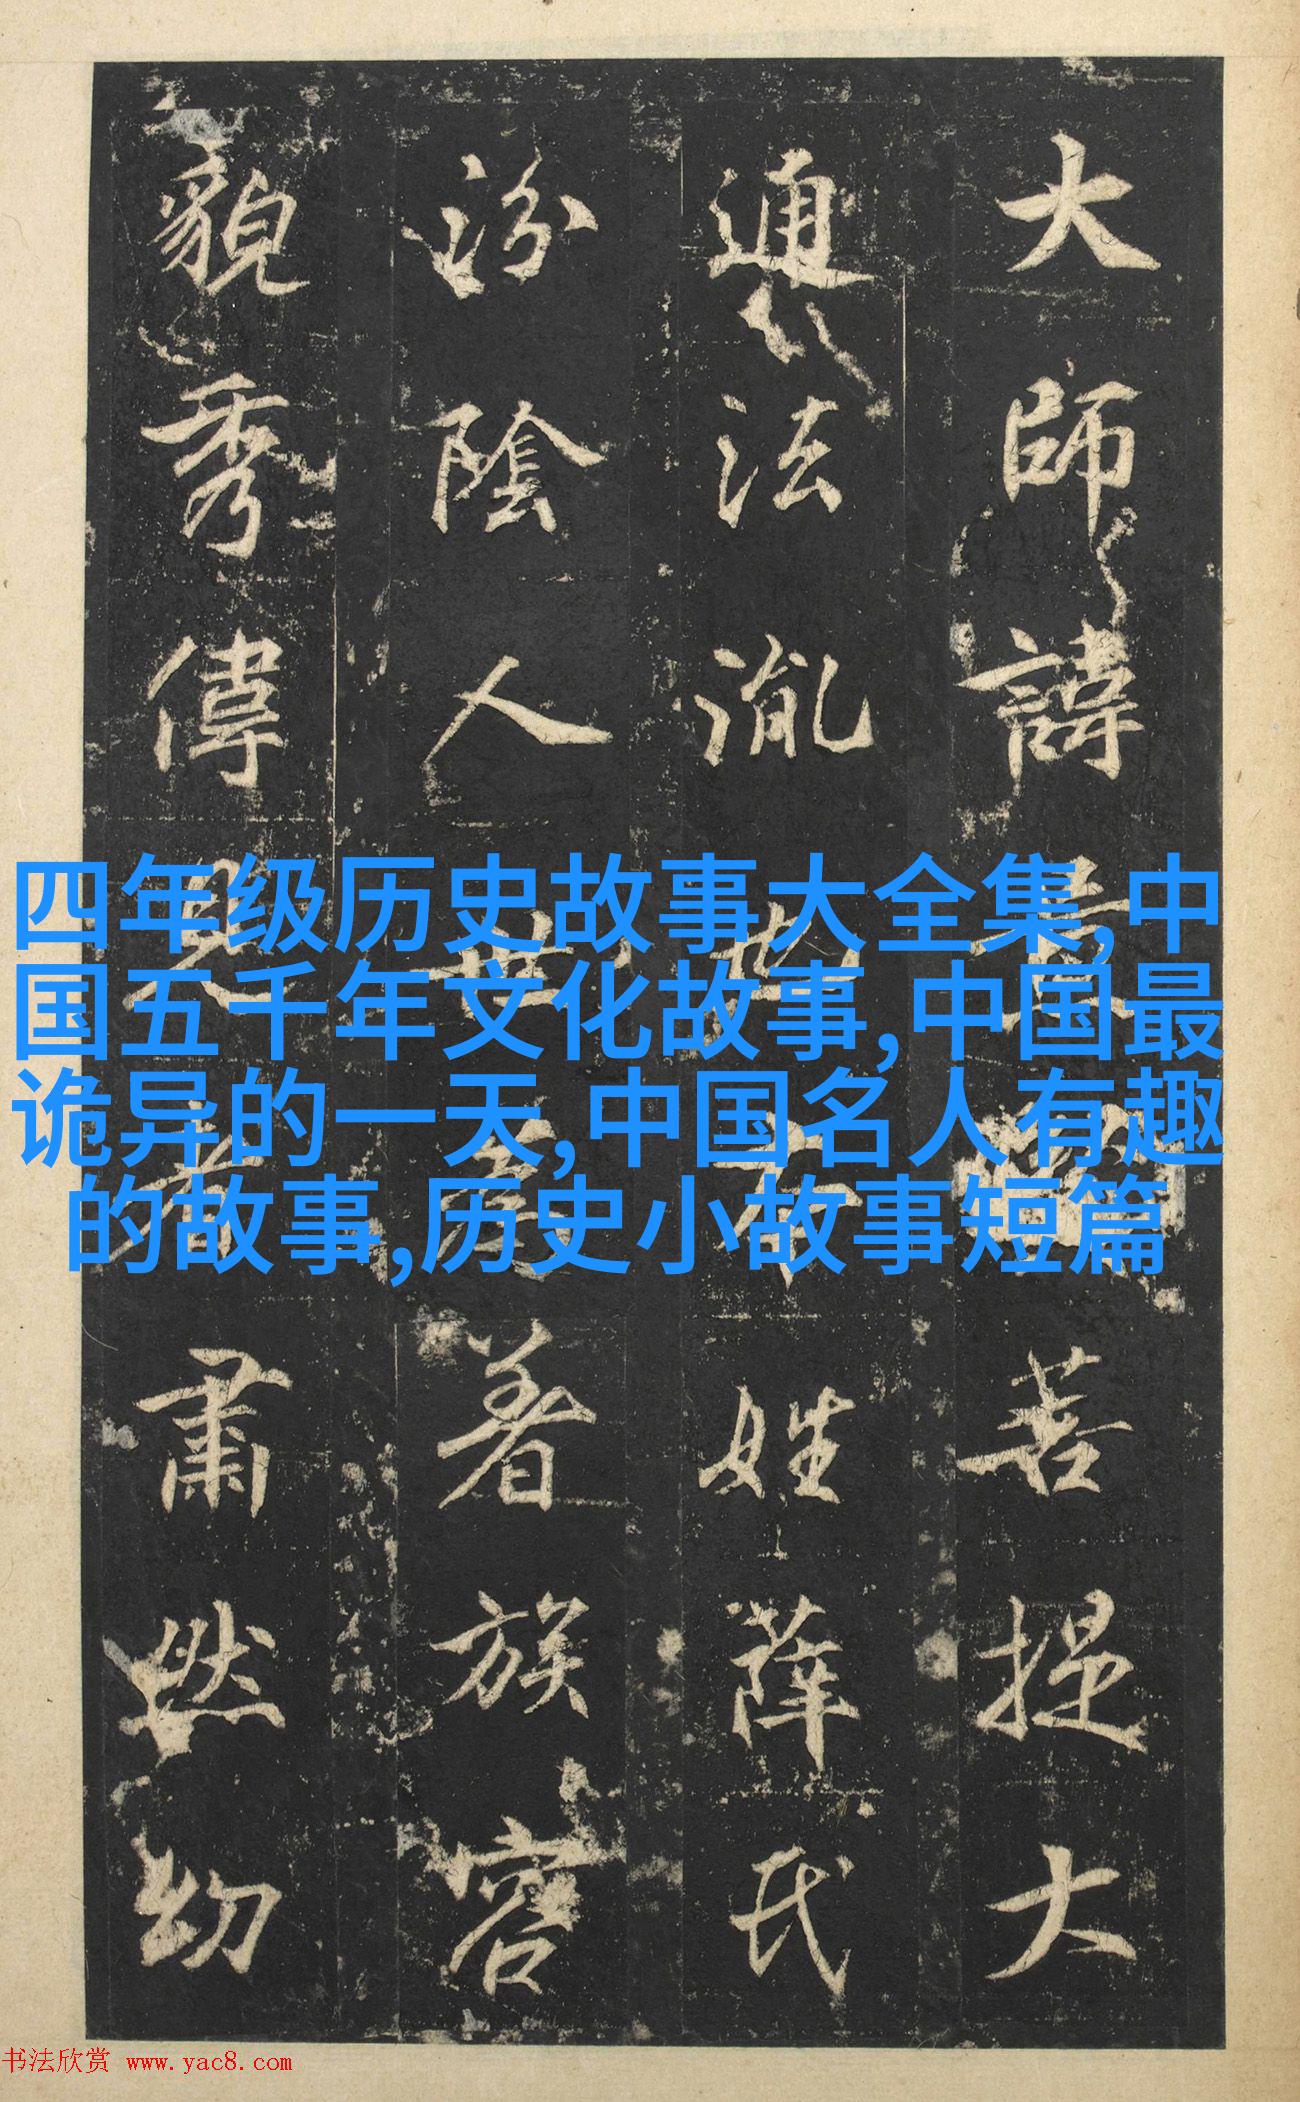 大師諱菩提大
通法姓薛氏
汾陰人世著族容
貌秀偉見者肅然幼
四年级历史故事大全集,中
国五千年文化故事,中国最
诡异的一天,中国名人有趣
的故事,历史小故事短篇
书法欣赏 www.yac8.com